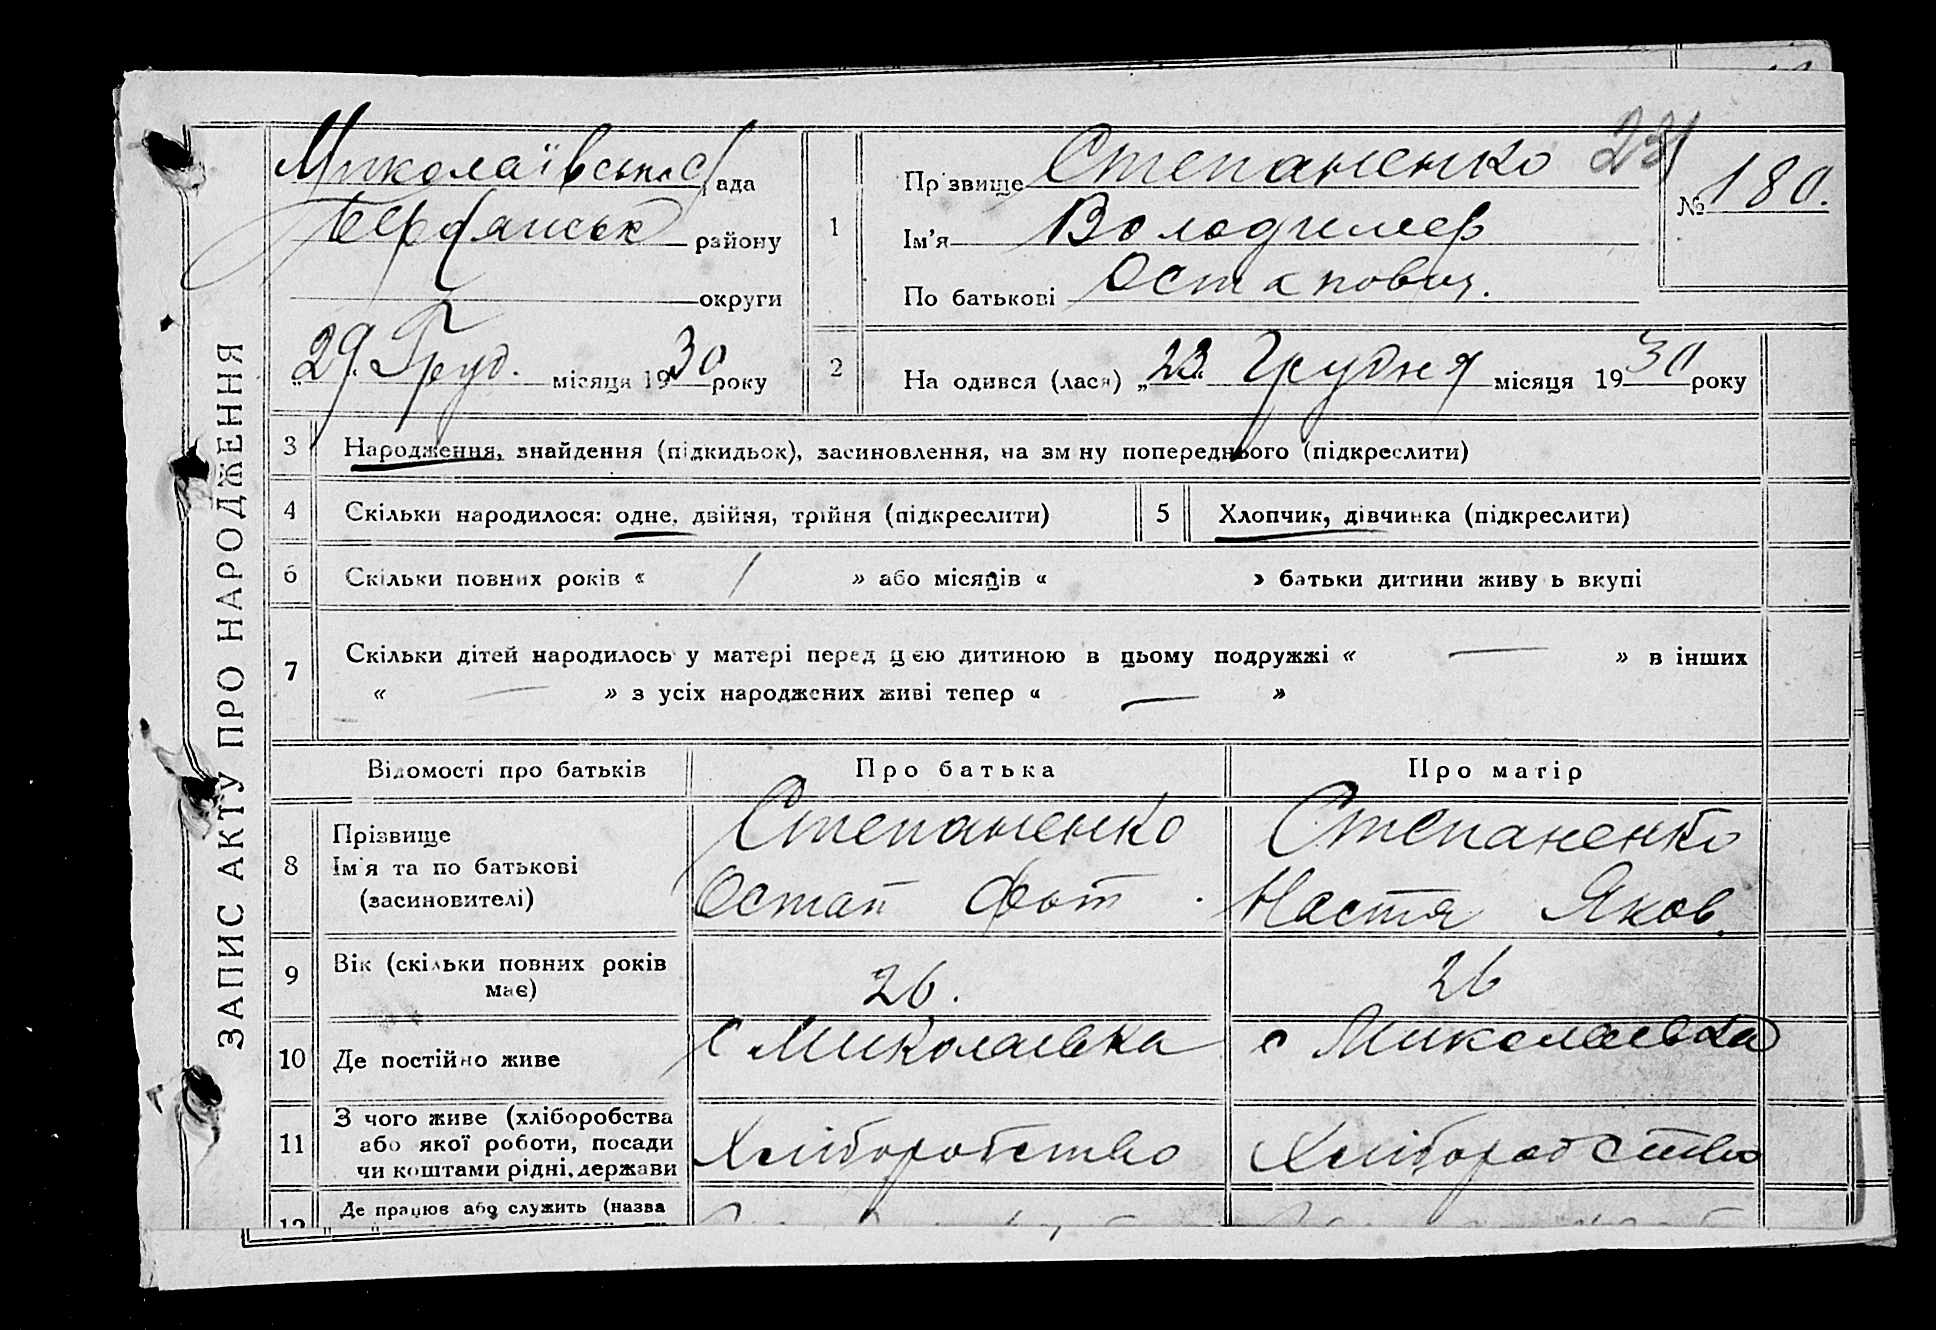 ЗАПИС АКТУ ПРО НАРОДЖЕННЯ
Миколаївська рада
Бердянськ району
округи
„29. Груд. місяця 1930 року
1
Прізвище Степаненко
Ім'я Володимер
По батькові Остапович.
231
№ 180.
2
На одився (лася) „23. Грудня місяця 1930 року
3 Народження, знайдення (підкидьок), засиновлення, на зм ну попереднього (підкреслити)
4 Скільки народилося: одне, двійня, трійня (підкреслити)
5 Хлопчик, дівчинка (підкреслити)
6 Скільки повних років « / » або місяців « » батьки дитини живу ь вкупі
7 Скільки дітей народилось у матері перед цією дитиною в цьому подружжі « — » в інших
« — » з усіх народжених живі тепер « — »
Відомості про батьків Про батька Про матір
8 Прізвище
Ім'я та по батькові
(засиновителі)
Степаненко
Остап Фот.
Степаненко
Настя Яков.
9 Вік (скільки повних років
має)
26.
26
10 Де постійно живе с Миколаевка с Миколаевка
11 З чого живе (хліборобства
або якої роботи, посади
чи коштами рідні, держави
Хліборобство
Хліборобство
12 Де працює або служить (назва